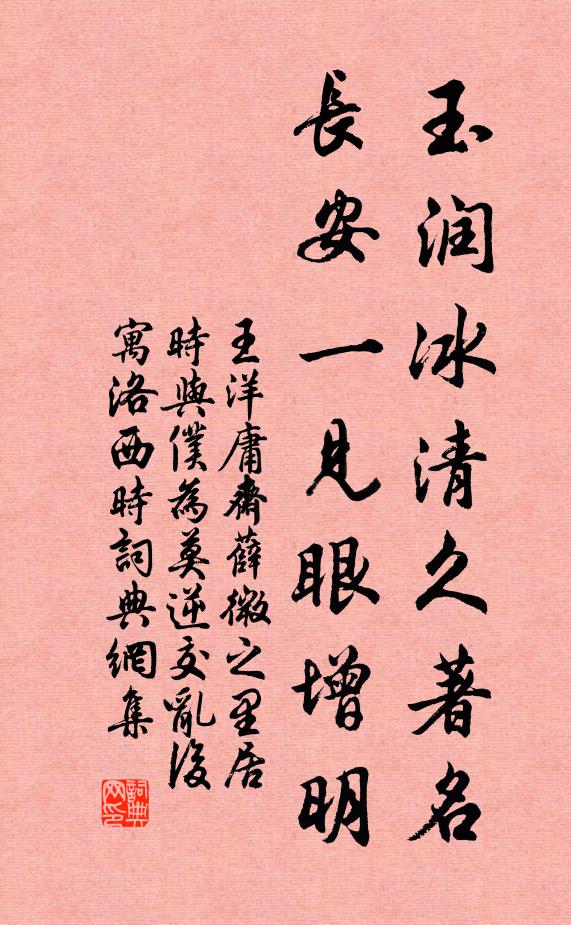 玉润冰清久著名
長安一見眼增明
王洋庸齋薛微之里居
時與僕為莫逆交亂後
寓洛西時詞典網集
詞典网印